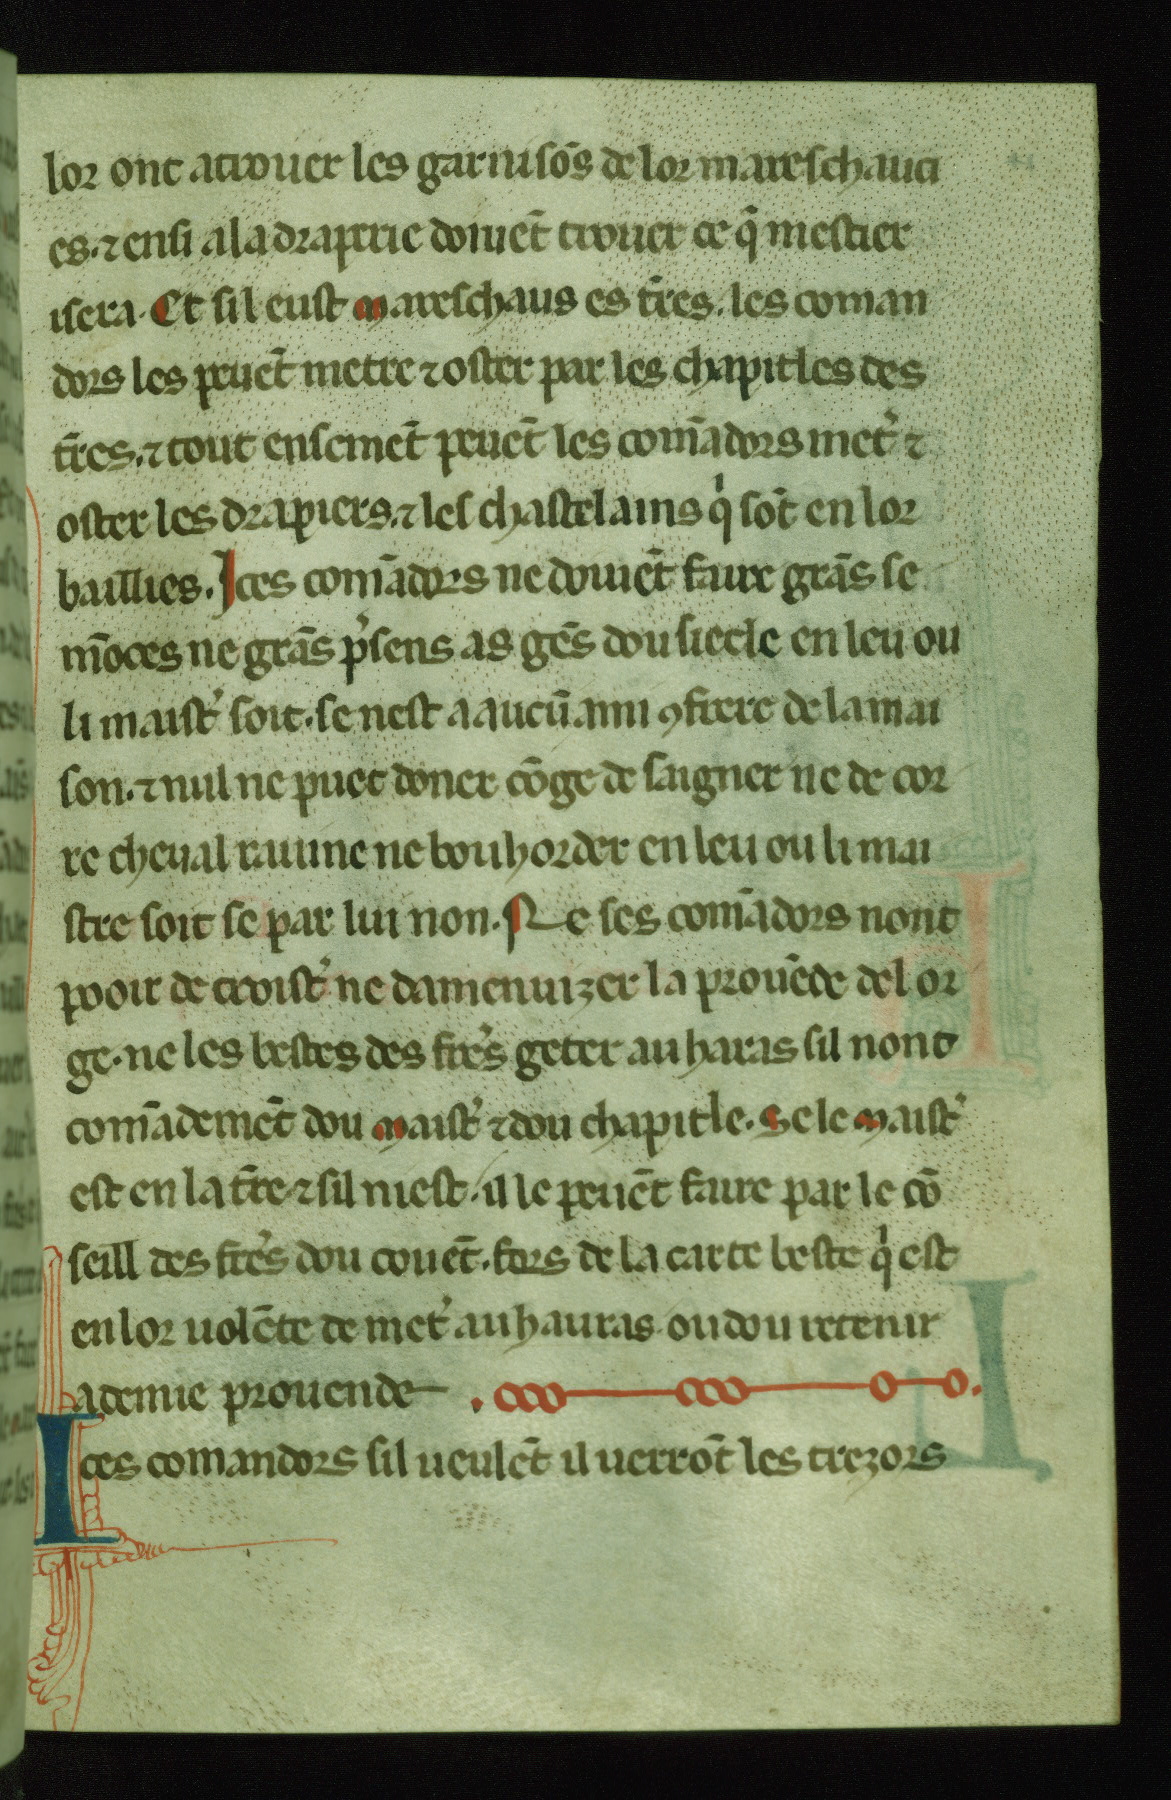 lor ont atrouer les garnisōs de lor mareschauci
es. ⁊ ensi ala draperie doiuēt trouer ce q̄ mestier
isera. Et sil eust mareschaus es t̄res. les coman
dors les peuēt metre ⁊ oster par les chapitles des
t̄res. ⁊ tout ensemēt peuēt les comādors met̾ ⁊
oster les drapiers. ⁊ les chastelains qͥ sōt en lor
baillies. Ices comādors ne doiuēt faire grās se
mōces ne grās p̾sens as gēs dou siecle en leu ou
li maist̾ soit. se nest a aucū ami ꝯfrere de la mai
son. ⁊ nul ne puet doner cōge de saigner ne de cor
re cheual raiune ne bouhorder en leu ou li mai
stre soit se par lui non. Ne ses comādors nont
pooir de croist̾ ne damenuizer la prouēde de lor
ge. ne les bestes des fre̾s geter au haras sil nont
comādemēt dou maist̾ ⁊ dou chapitle. Se le maist̾
est en la t̄re ⁊ sil niest. il le peuēt faire par le cō
seill des fre̾s dou couēt. fors de la carte beste qͥ est
en lor uolēte de met̾ au hauras ou dou retenir
ademie prouende
Ices comandors sil ueulēt il uerrōt les trezors